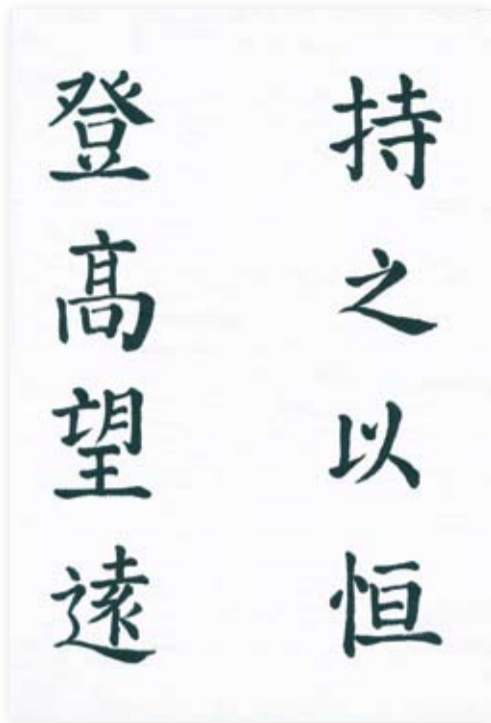 持之以恒
登髙望遠